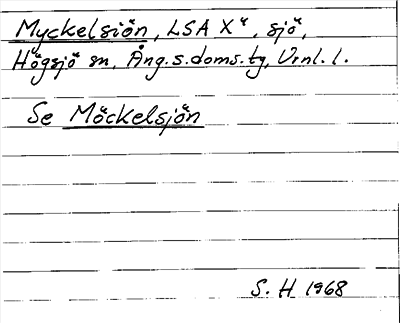 Myckelsiön, LSA Xᵃ, sjö,
Högsjö sn, Ång.s.doms.tg, Vrnl. l.
Se Möckelsjön
S. H 1968